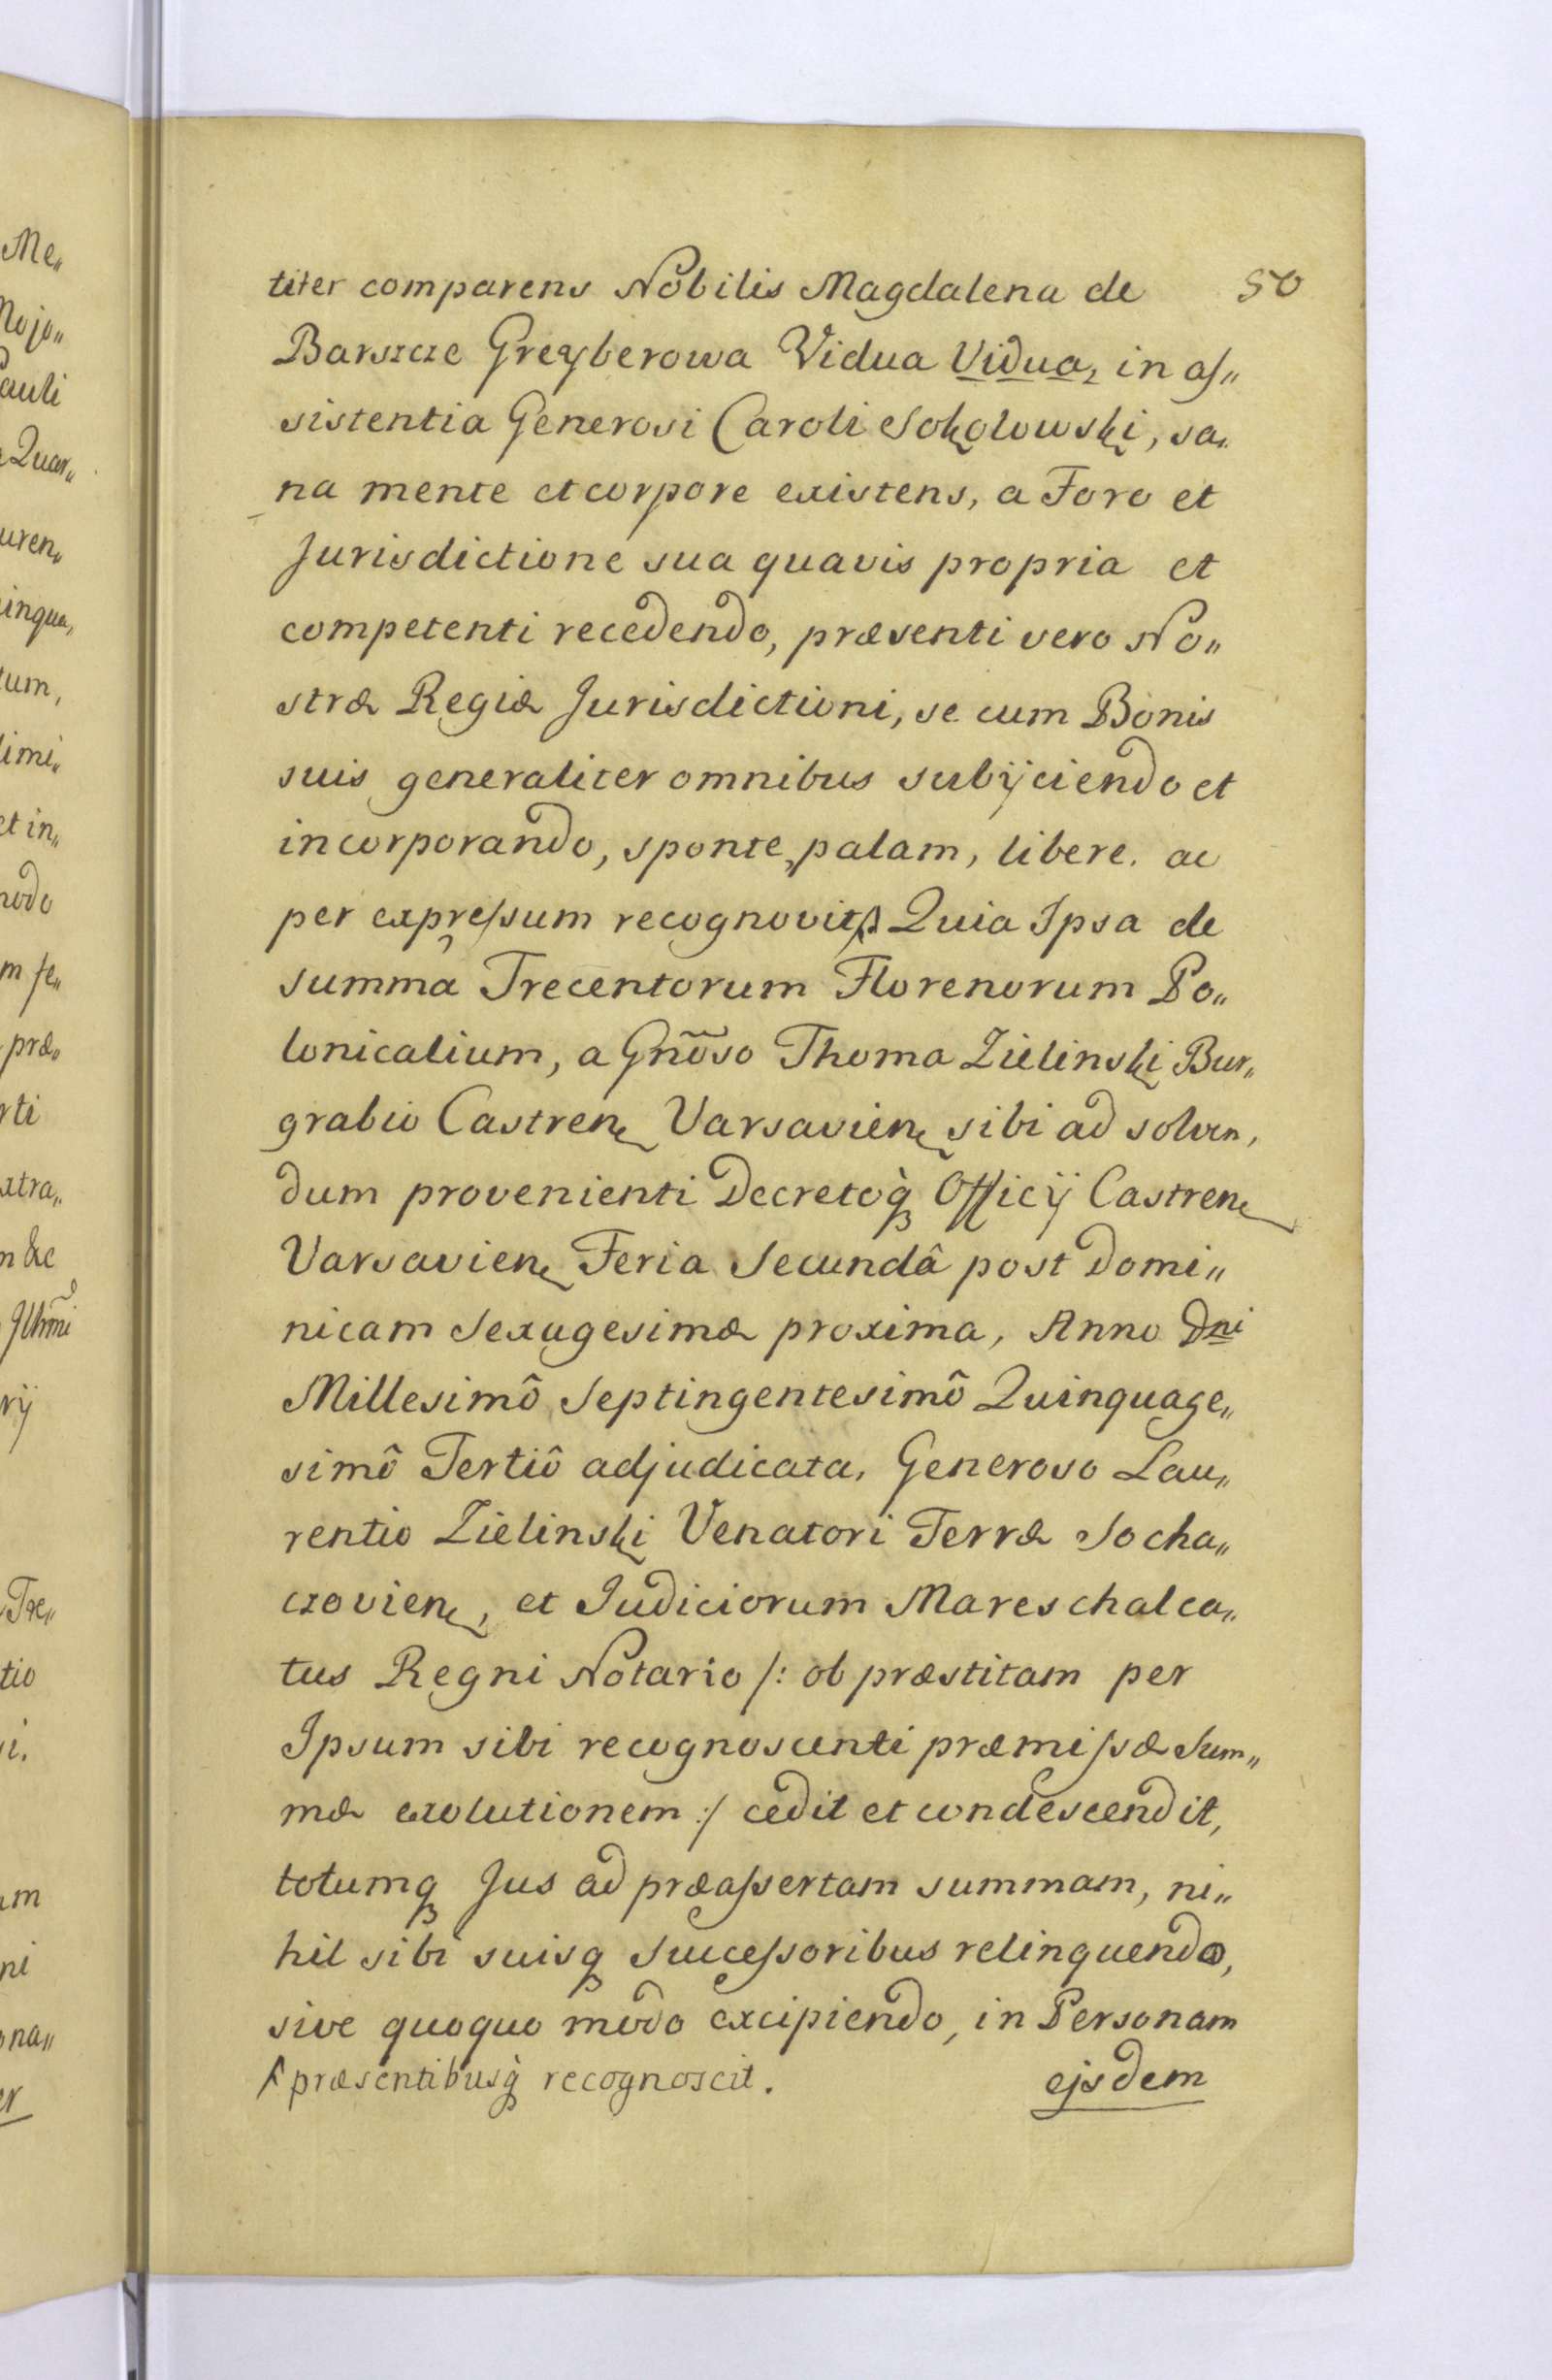 50
titer comparens Nobilis Magdalena de
Barszcze Greyberowa Vidua Vidua, in as„
sistentia Generosi Caroli Sokołowski, sa„
na mente et corpore existens, a Foro et
Jurisdictione sua quavis propria et
competenti recedendo, præsenti vero No„
stræ Regiæ Jurisdictioni, se cum Bonis
suis generaliter omnibus subijciendo et
incorporando, sponte, palam, libere. ac
per expressum recognovit Quia Ipsa de
summa Trecentorum Florenorum Po„
lonicalium, a Gnõso Thoma Zielinski Bur„
grabio Castren Varsavien sibi ad solven„
dum provenienti Decretoq̀ Officij Castren
Varsavien Feria Secundâ post Domi„
nicam Sexagesimæ proxima, Anno Dni
Millesimô Septingentesimô Quinquage„
simô Tertiô adjudicata, Generoso Lau„
rentio Zielinski Venatori Terræ Socha„
czovien, et Judiciorum Mareschalca„
tus Regni Notario /: ob præstitam per
Ipsum sibi recognoscenti præmissæ Sum„
mæ exolutionem :/ cedit et condescendit,
totumq Jus ad præassertam summam, ni„
hil sibi suisq Successoribus relinquendo,
sive quoquo modo excipiendo, in Personam
præsentibusq̀ recognoscit.
ejsdem